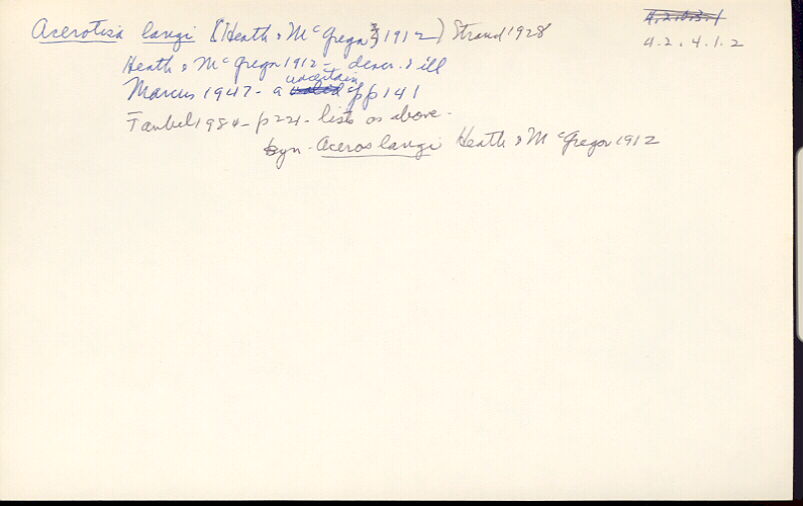 Acerotisa langi (Heath & McGregor 1912) Strand 1928
4.2.0.3.1
4.2.4.1.2
Heath & McGregor 1912 - descr. & ill
Marcus 1947 - a valid uncertain sp p 141
Faubel 1984 - p 221 - lists as above.
Syn - Aceros langi Heath & McGregor 1912